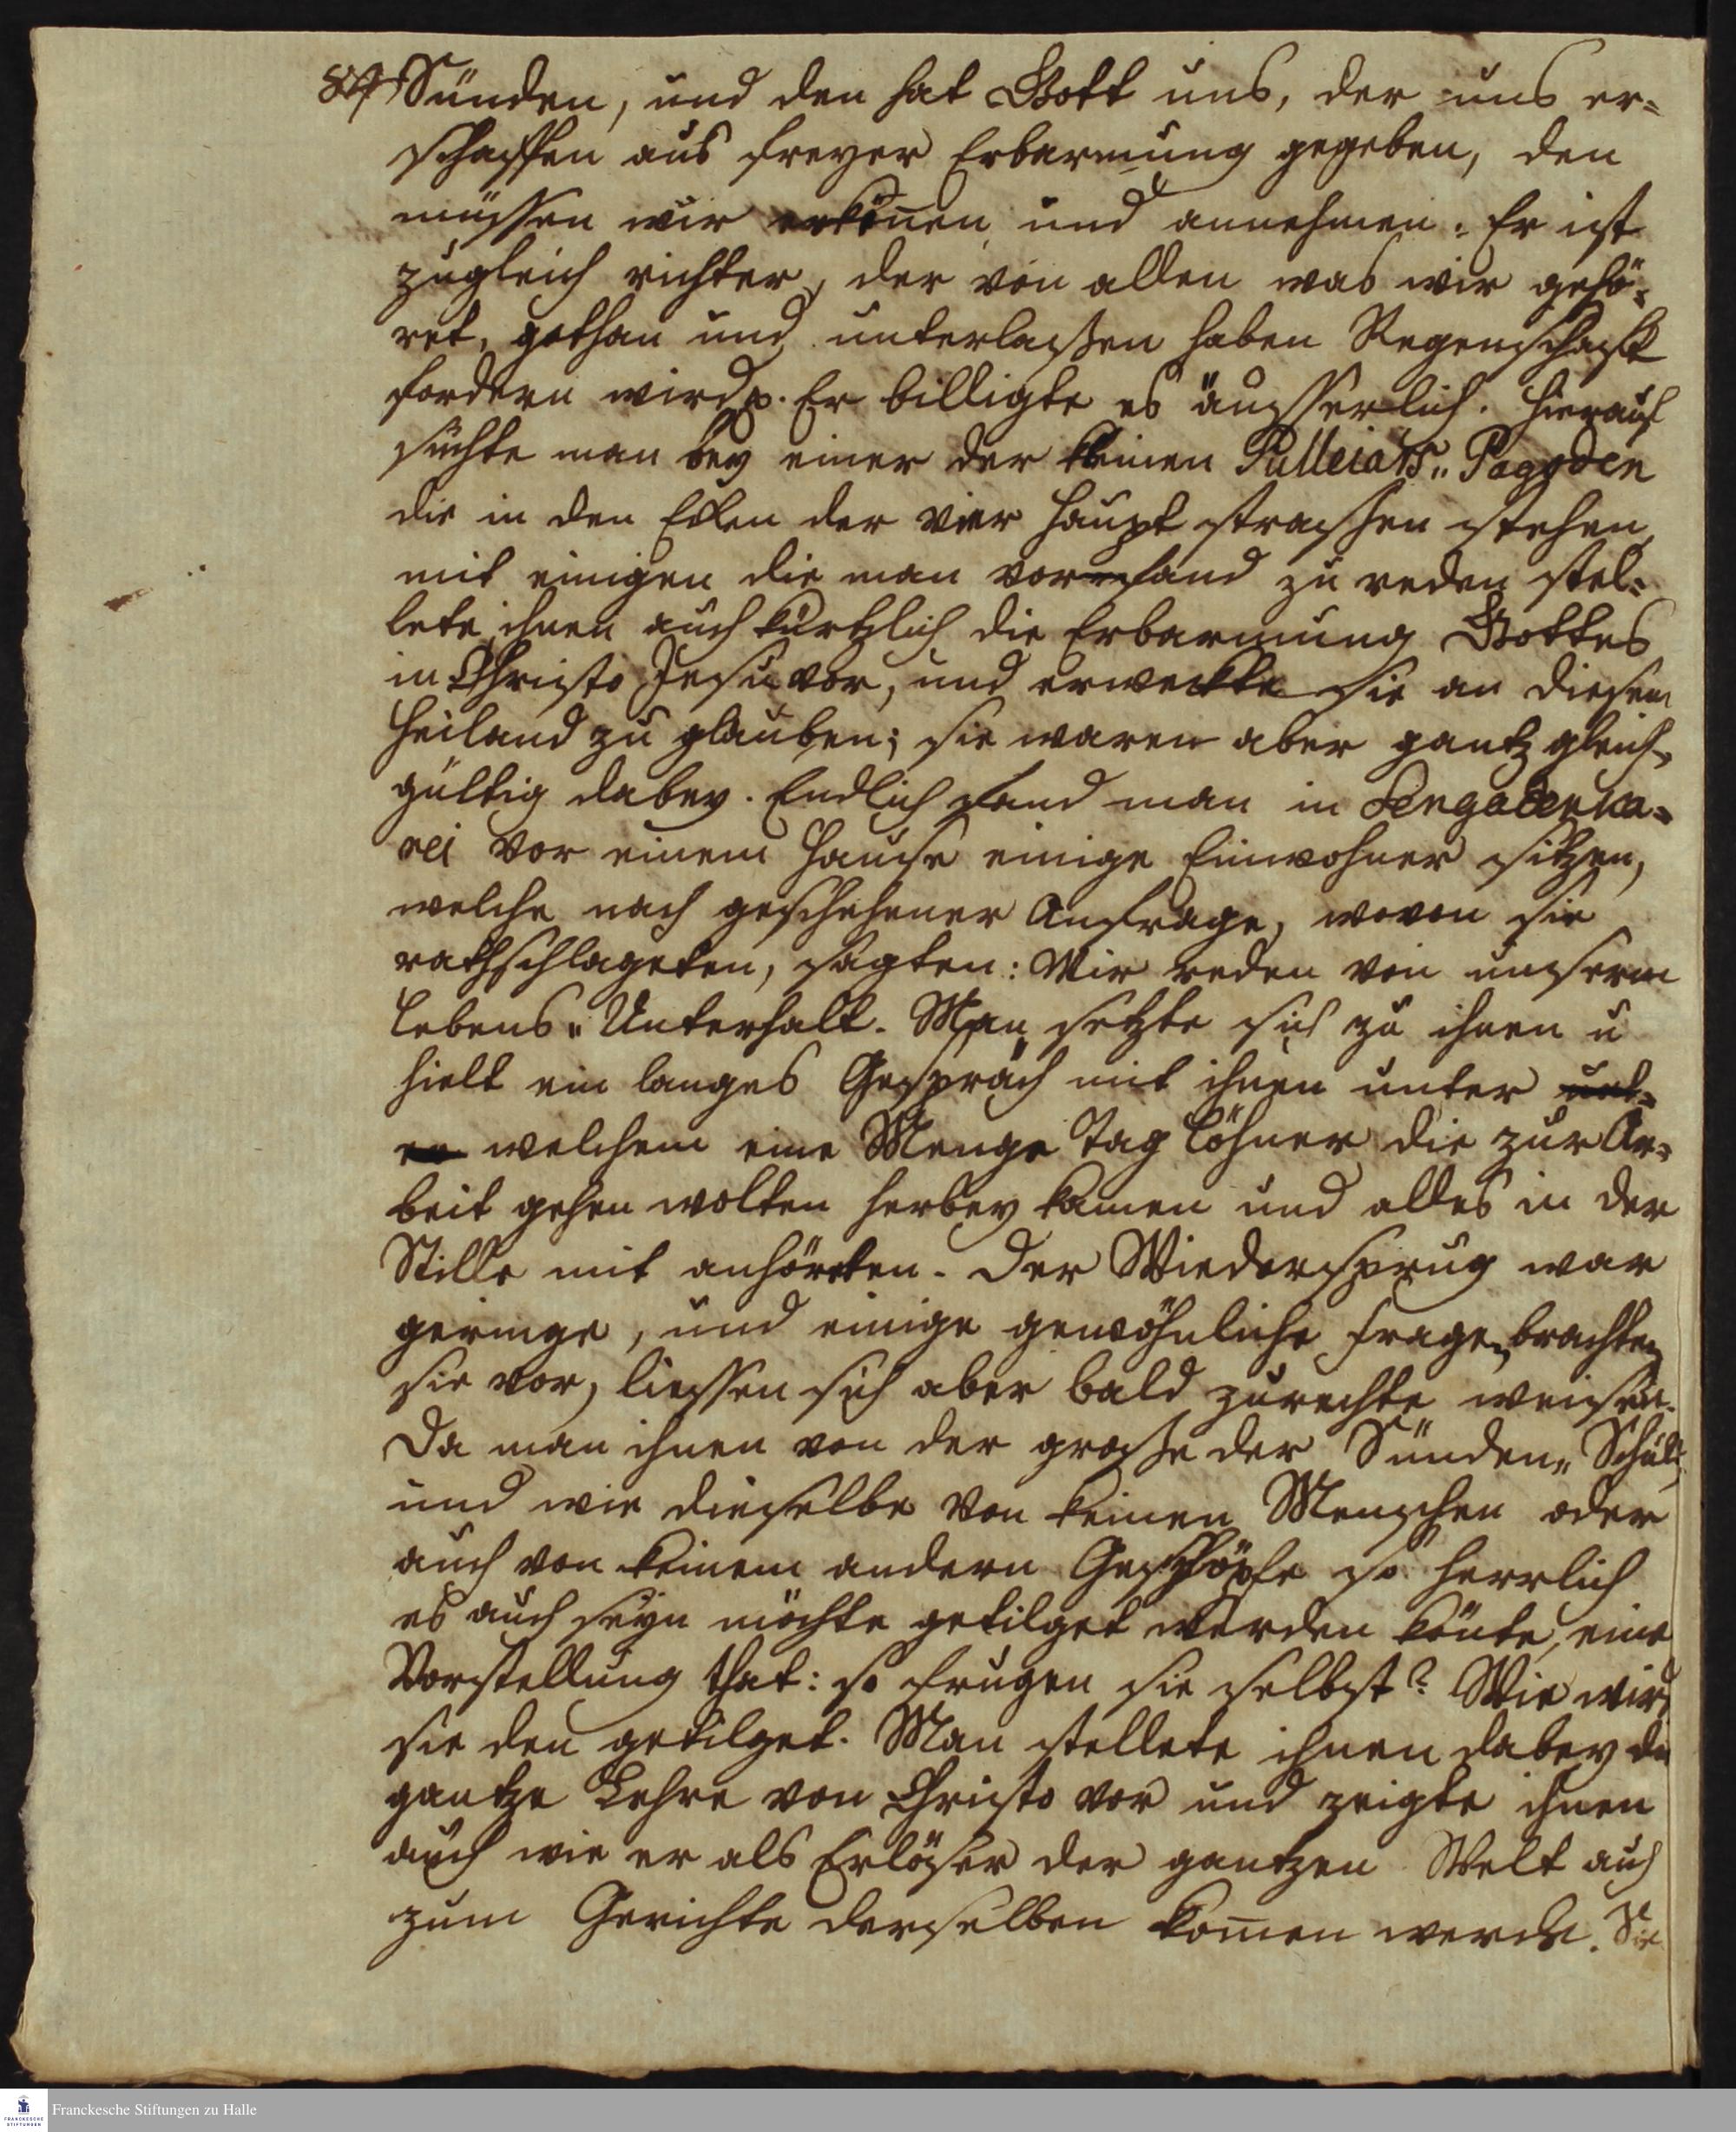 Sünden, und den hat Gott uns, der uns er=
schaffen aus freyer Erbarmung gegeben, den
müssen wir erkennen und annehmen. Er ist
zugleich richter, der von allen was wir gehö=
ret, gethan und unterlassen haben Regenschafft
fordern wird p. Er billigte es äusserlich. Hierauf
suchte man bey einer der kleinen Pulleiars=Pagoden
die in den Ecken der vier Haupt strassen stehen,
mit einigen die man vorfand zu reden stel=
lete ihnen auch kürtzlich die Erbarmung Gottes
in Christo Jesu vor, und erweckte sie an diesen
Heiland zu glauben; sie waren aber gantz gleich=
gültig dabey. Endlich fand man in
rei vor einem Hause einige Einwohner sitzen,
welche nach geschehener Anfrage, wovon sie
rathschlageten, sagten: Wir reden von unserm
Lebens=Unterhalt. Man setzte sich zu ihnen u
hielt ein langes Gespräch mit ihnen unter
welchem eine Menge Tag löhner die zur Ar=
beit gehen wolten herbey kamen und alles in der
Stille mit anhöreten. Der Wiederspruch war
geringe, und einige gewöhnliche Fragen brachten
sie vor, liessen sich aber bald zurechte weisen.
Da man ihnen von der grosse der Sünden=Schuld
und wie dieselbe von keinen Menschen oder
auch von keinem andern Geschöpfe so herrlich
es auch seyn möchte getilget werden könte, eine
Vorstellung that: so frugen sie selbst? Wie wird
sie den getilget. Man stellete ihnen dabey die
gantze Lehre von Christo vor und zeigte ihnen
auch wie er als Erlöser der gantzen Welt auch
zum Gerichte derselben komen werde. Sie
Franckesche Stiftungen zu Halle